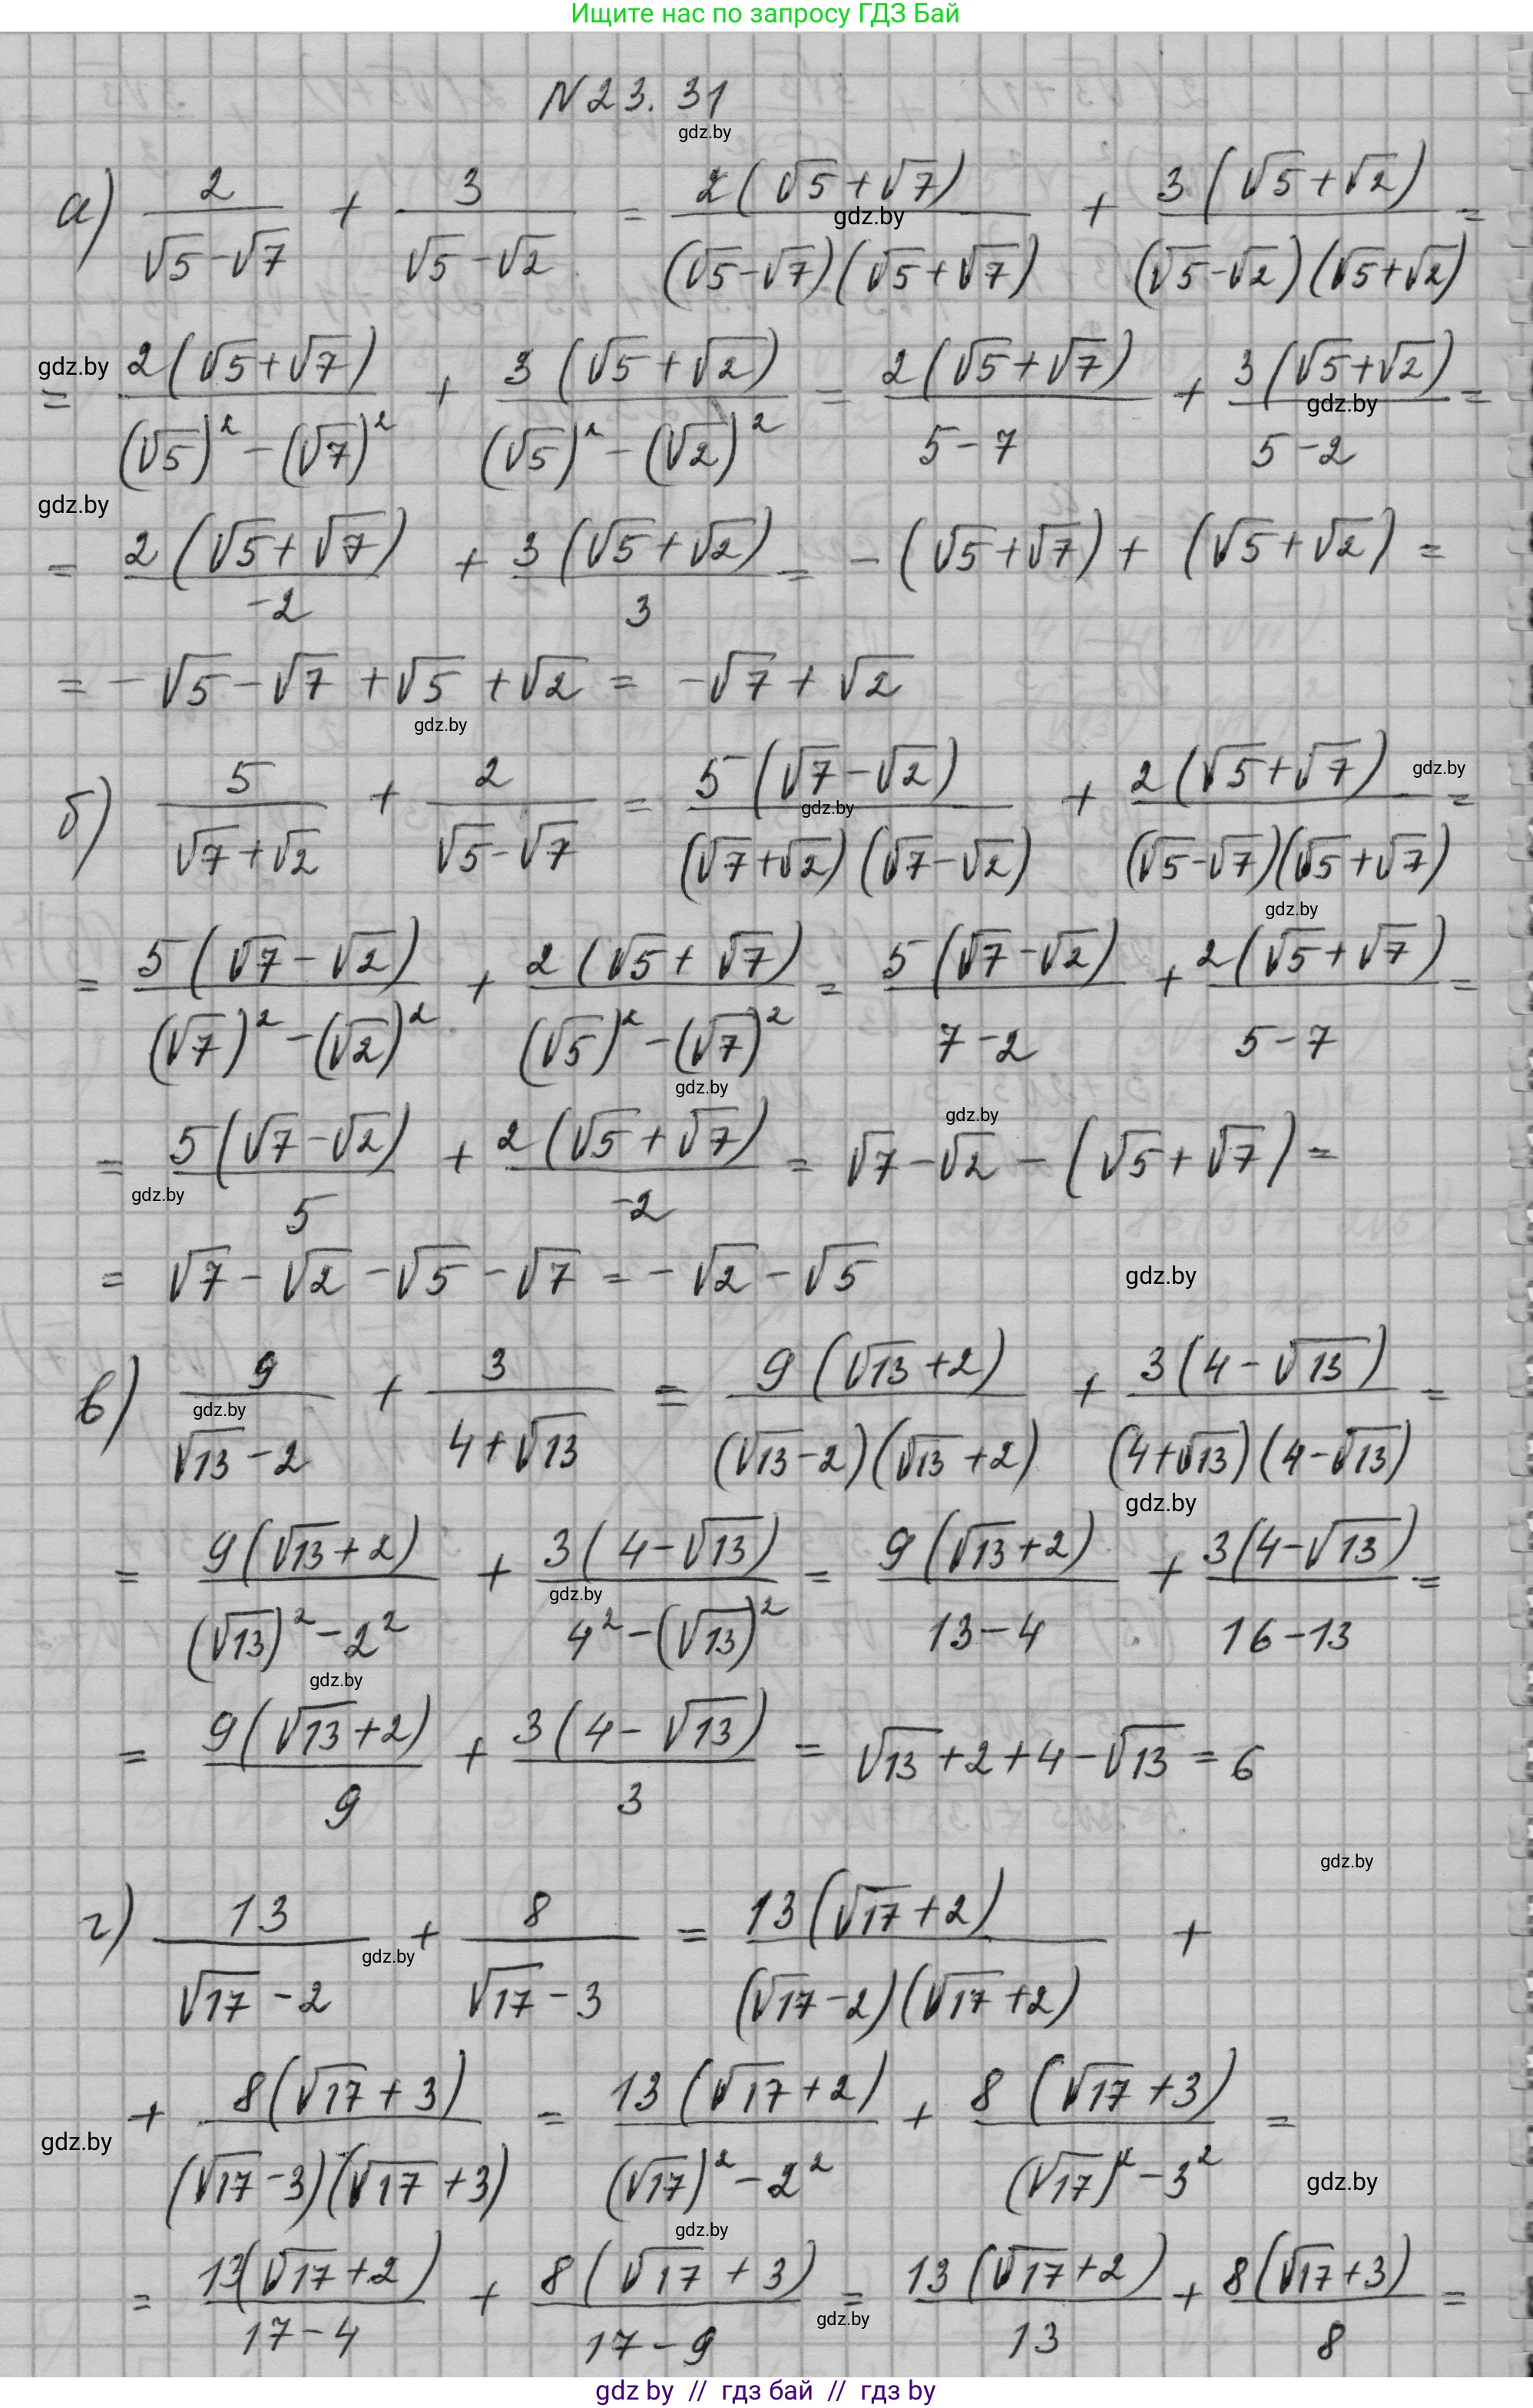 Ищите нас по запросу ГДЗ Бай
N 23. 31
gdz.by
а) 2/(√5-√7) + 3/(√5-√2) = 2(√5+√7)/((√5-√7)(√5+√7)) + 3(√5+√2)/((√5-√2)(√5+√2)) =
gdz.by
gdz.by
= 2(√5+√7)/((√5)²-(√7)²) + 3(√5+√2)/((√5)²-(√2)²) = 2(√5+√7)/(5-7) + 3(√5+√2)/(5-2) =
gdz.by
gdz.by
= 2(√5+√7)/(-2) + 3(√5+√2)/3 = -(√5+√7) + (√5+√2) =
= -√5-√7+√5+√2 = -√7+√2
gdz.by
б) 5/(√7+√2) + 2/(√5-√7) = 5(√7-√2)/((√7+√2)(√7-√2)) + 2(√5+√7)/((√5-√7)(√5+√7)) =
gdz.by
gdz.by
gdz.by
= 5(√7-√2)/((√7)²-(√2)²) + 2(√5+√7)/((√5)²-(√7)²) = 5(√7-√2)/(7-2) + 2(√5+√7)/(5-7) =
gdz.by
gdz.by
= 5(√7-√2)/5 + 2(√5+√7)/(-2) = √7-√2-(√5+√7) =
gdz.by
= √7-√2-√5-√7 = -√2-√5
gdz.by
в) 9/(√13-2) + 3/(4+√13) = 9(√13+2)/((√13-2)(√13+2)) + 3(4-√13)/((4+√13)(4-√13)) =
gdz.by
gdz.by
= 9(√13+2)/((√13)²-2²) + 3(4-√13)/(4²-(√13)²) = 9(√13+2)/(13-4) + 3(4-√13)/(16-13) =
gdz.by
gdz.by
= 9(√13+2)/9 + 3(4-√13)/3 = √13+2+4-√13 = 6
gdz.by
г) 13/(√17-2) + 8/(√17-3) = 13(√17+2)/((√17-2)(√17+2)) +
gdz.by
+ 8(√17+3)/((√17-3)(√17+3)) = 13(√17+2)/((√17)²-2²) + 8(√17+3)/((√17)²-3²) =
gdz.by
gdz.by
gdz.by
= 13(√17+2)/(17-4) + 8(√17+3)/(17-9) = 13(√17+2)/13 + 8(√17+3)/8 =
gdz.by
gdz by // гдз бай // гдз by